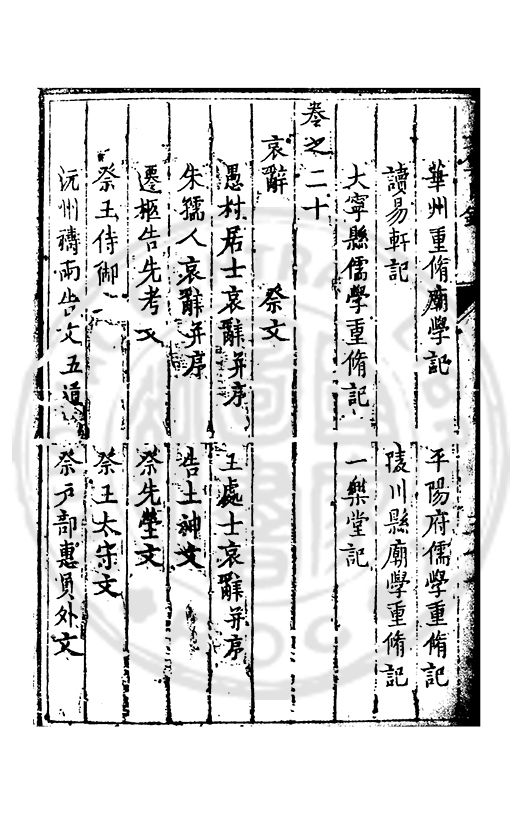 華州重脩廟學記　平陽府儒學重脩記
讀易軒記　陵川縣廟學重脩記
大寧縣儒學重脩記　一樂堂記
卷之二十
哀辭　祭文
愚村居士哀辭并序　王處士哀辭并序
朱孺人哀辭并序　告土神文
遷柩告先考文　祭先塋文
祭王侍御　祭王太守文
沅州禱雨告文五道　祭戶部惠員外文